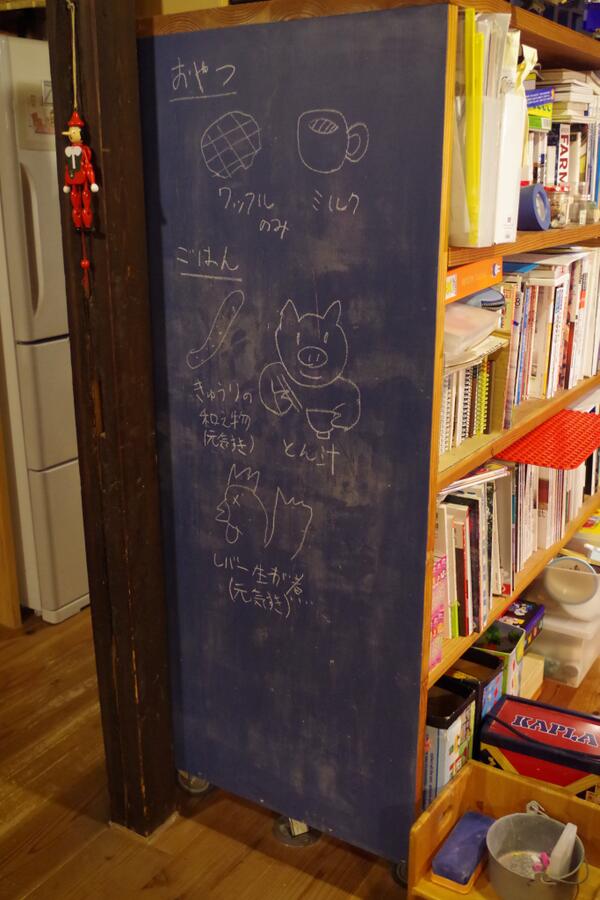 おやつ
ワッフル
のみ
ミルク
ごはん
きゅうりの
和え物
(元気玉)
とん汁
レバー生が煮
(元気玉)
FARM
KAPLA